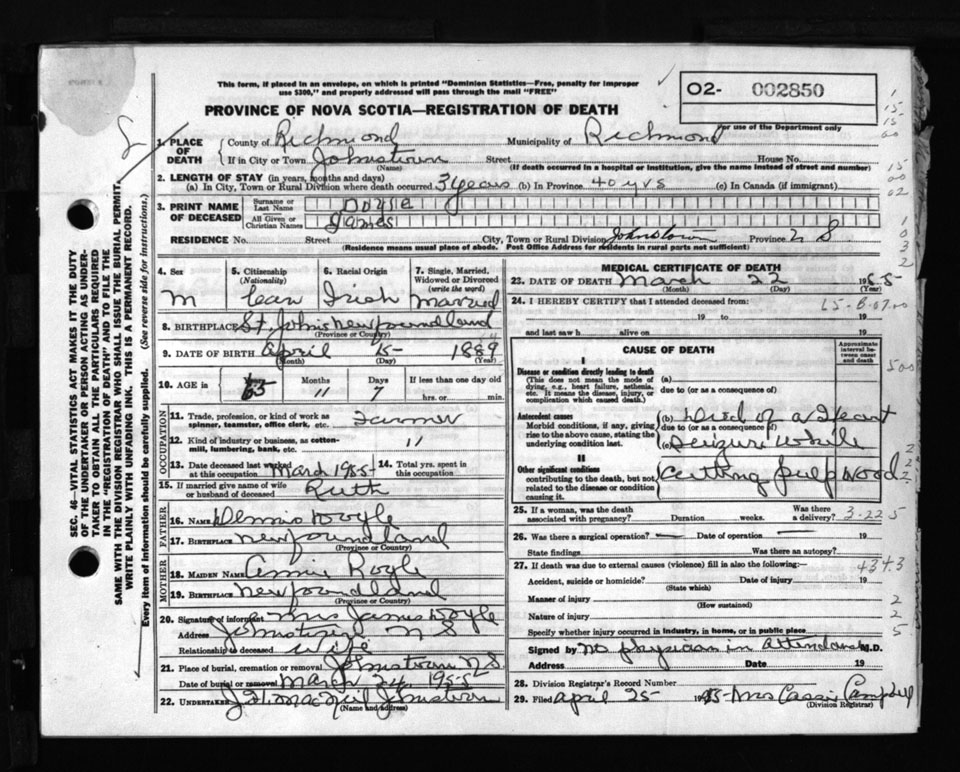 This form, if placed in an envelope, on which is printed "Dominion Statistics—Free, penalty for improper
use $300," and properly addressed will pass through the mail "FREE"
PROVINCE OF NOVA SCOTIA—REGISTRATION OF DEATH
02- 002850
For use of the Department only
1. PLACE OF DEATH { County of Richmond Municipality of Richmond
If in City or Town Johnstown Street House No.
(Name) (If death occurred in a hospital or institution, give the name instead of street and number)
2. LENGTH OF STAY (in years, months and days)
(a) In City, Town or Rural Division where death occurred 3 years (b) In Province 40 yrs (c) In Canada (if immigrant)
3. PRINT NAME OF DECEASED { Surname or Last Name Doyle
All Given or Christian Names James
RESIDENCE No. Street City, Town or Rural Division Johnstown Province N S
(Residence means usual place of abode. Post Office Address for residents in rural parts not sufficient)
4. Sex M
5. Citizenship (Nationality) Can
6. Racial Origin Irish
7. Single, Married, Widowed or Divorced (write the word) Married
8. BIRTHPLACE St. Johns newfoundland
(Province or Country)
9. DATE OF BIRTH April 15 1889
(Month) (Day) (Year)
10. AGE in 65 Months 11 Days 7 If less than one day old
hrs. or min.
OCCUPATION
11. Trade, profession, or kind of work as spinner, teamster, office clerk, etc. Farmer
12. Kind of industry or business, as cotton-mill, lumbering, bank, etc. "
13. Date deceased last worked at this occupation March 1955 14. Total yrs. spent in this occupation
15. If married give name of wife or husband of deceased Ruth
FATHER
16. NAME Dennis Doyle
17. BIRTHPLACE newfoundland
(Province or Country)
MOTHER
18. MAIDEN NAME Annie
19. BIRTHPLACE newfoundland
(Province or Country)
20. Signature of informant Mrs James Doyle
Address Johnstown N S
Relationship to deceased wife
21. Place of burial, cremation or removal Johnstown N.S.
Date of burial or removal March 24 1955
22. UNDERTAKER MacNeil Johnstown
(Name and address)
MEDICAL CERTIFICATE OF DEATH
23. DATE OF DEATH March 22 1955
(Month) (Day) (Year)
24. I HEREBY CERTIFY that I attended deceased from:
19 to 19
and last saw h alive on 19
CAUSE OF DEATH
Approximate interval between onset and death
I
Disease or condition directly leading to death
(This does not mean the mode of dying, e.g., heart failure, asthenia, etc. It means the disease, injury, or complication which caused death.)
(a)
due to (or as a consequence of)
Antecedent causes
Morbid conditions, if any, giving rise to the above cause, stating the underlying condition last.
(b) Died of a Heart
due to (or as a consequence of)
(c) Seizure while
II
Other significant conditions
contributing to the death, but not related to the disease or condition causing it.
cutting pulp wood
25. If a woman, was the death associated with pregnancy? Duration weeks. Was there a delivery? 3-22 5
26. Was there a surgical operation? — Date of operation — 19
State findings Was there an autopsy?
27. If death was due to external causes (violence) fill in also the following:— 4343
Accident, suicide or homicide? Date of injury 19
(State which)
Manner of injury
(How sustained)
Nature of injury
Specify whether injury occurred in industry, in home, or in public place
Signed by No physician in attendance M.D.
Address Date 19
28. Division Registrar's Record Number
29. Filed April 25 1955 Mrs Cassie Campbell
(Division Registrar)
SEC. 46 VITAL STATISTICS ACT MAKES IT THE DUTY
OF THE UNDERTAKER OR PERSON ACTING AS UNDER-
TAKER TO OBTAIN ALL THE PARTICULARS REQUIRED
IN THE "REGISTRATION OF DEATH" AND TO FILE THE
SAME WITH THE DIVISION REGISTRAR WHO SHALL ISSUE THE BURIAL PERMIT.
WRITE PLAINLY WITH UNFADING INK. THIS IS A PERMANENT RECORD.
Every item of information should be carefully supplied. (See reverse side for instructions.)